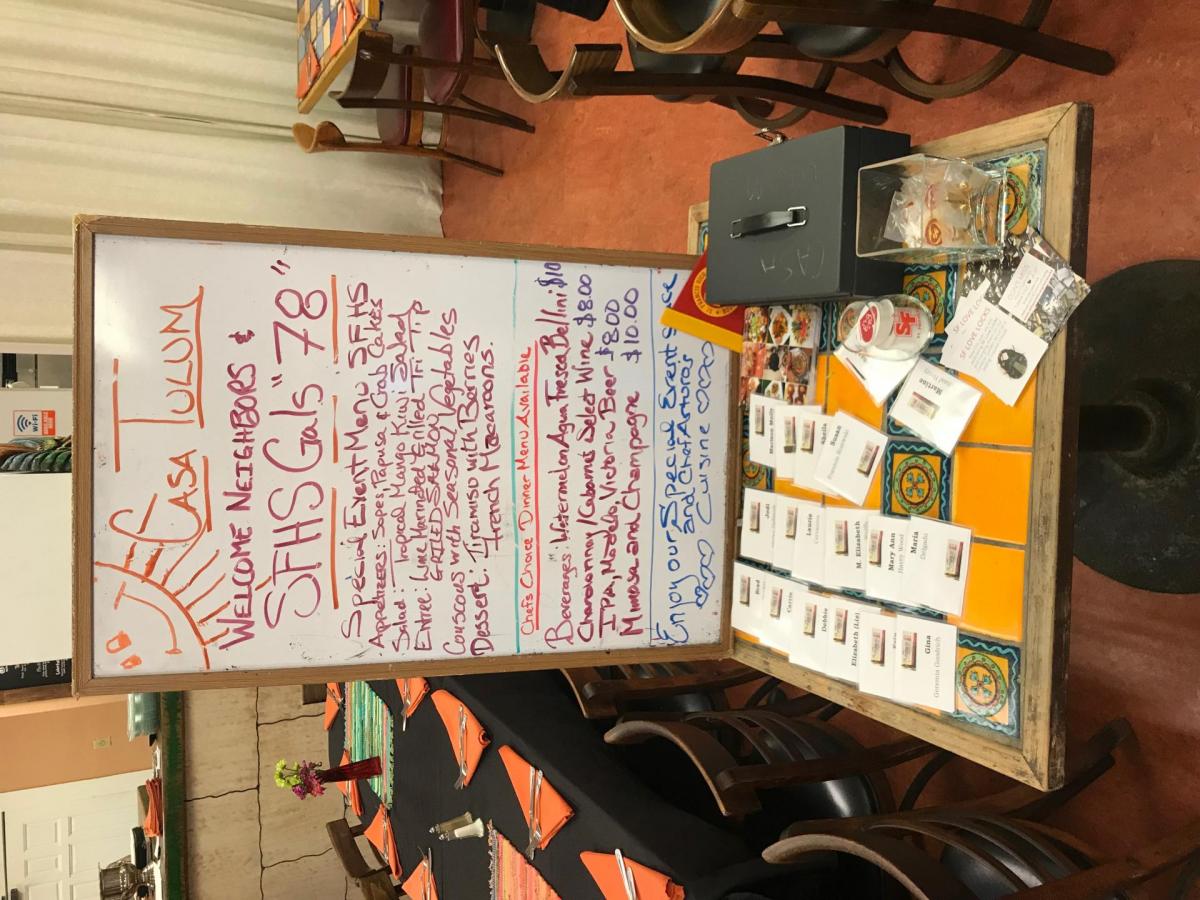 CASA TULUM
WELCOME NEIGHBORS &
SFHS Gals "78"
Special Event Menu SFHS
Appetizers: Sopes, Papusa & Crab Cakes
Salad: Tropical Mango Kiwi Salad
Entree: Lime Marinated Grilled Tri Tip
GRILLED SALMON
Couscous with Seasonal Vegetables
Dessert: Tiramisu with Berries
French Macaroons.
Chefs Choice Dinner Menu Available
Beverages: Watermelon Agua Fresca Bellini $10
Chardonnay/Cabarnet Select Wine $8.00
IPA, Modelo, Victoria Beer $8.00
Mimosa and Champagne $10.00
Enjoy our Special Event
and Chef Arturo's
Cuisine
CASH
SF
SF LOVE LOCKS
Martine
Susan
Sheila
Jodi
Laurie
M. Elizabeth
Mary Ann
Maria
Delgado
Carrie
Debbie
Elizabeth (Liz)
Gina
Wi-Fi